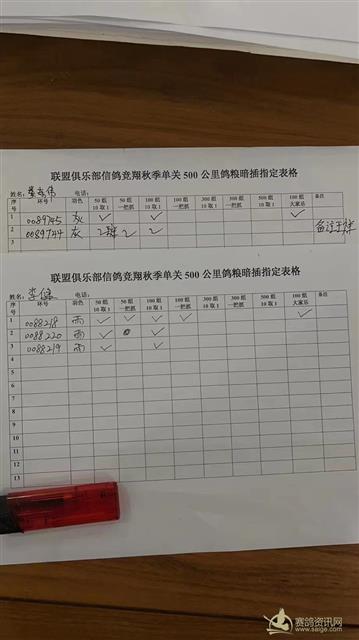 联盟俱乐部信鸽竞翔秋季单关 500 公里鸽粮暗插指定表格
姓名: 电话:
序号 环号 羽色 50 组 10 取 1 50 组 一把抓 100 组 10 取 1 100 组 一把抓 300 组 10 取 1 300 组 一把抓 500 组 10 取 1 100 组 大家乐 备注
1 0089745 灰 ✓ ✓ ✓
2 0089744 灰
3
联盟俱乐部信鸽竞翔秋季单关 500 公里鸽粮暗插指定表格
姓名: 李健 电话:
序号 环号 羽色 50 组 10 取 1 50 组 一把抓 100 组 10 取 1 100 组 一把抓 300 组 10 取 1 300 组 一把抓 500 组 10 取 1 100 组 大家乐 备注
1 0088218 雨 ✓ ✓ ✓ ✓ ✓
2 0088220 雨 ✓ ✓
3 0088219 雨 ✓ ✓
4
5
6
7
8
9
10
11
12
13
赛鸽资讯网
www.saige.com